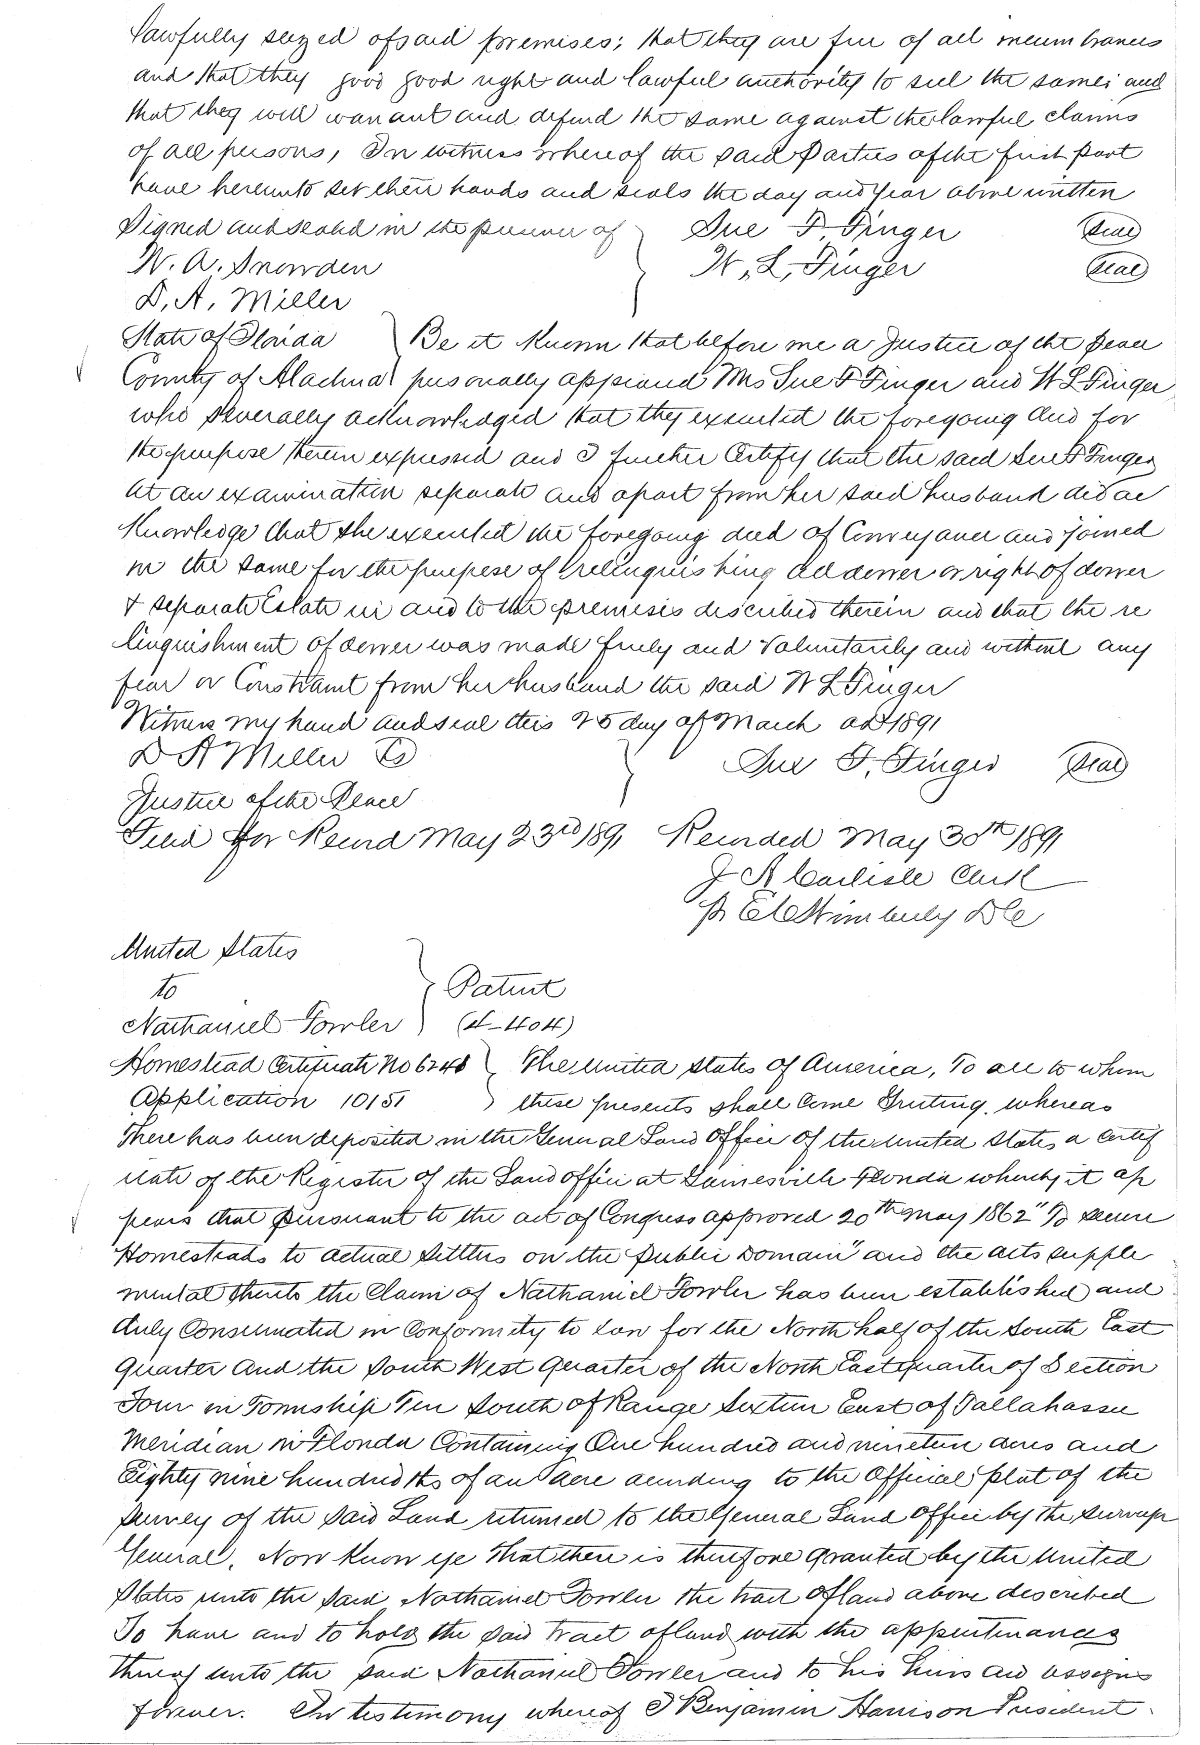 lawfully seized of said premises; that they are free of all incumbrances
and that they good good right and lawful authority to sell the same; and
that they will warrant and defend the same against the lawful claims
of all persons, In witness whereof the said Parties of the first part
have hereunto set their hands and seals the day and year above written
Signed and sealed in the presence of } Sue F. Finger (Seal)
W. A. Snowden } W. L. Finger (Seal)
D. A. Miller
State of Florida } Be it Known that before me a Justice of the Peace
County of Alachua } personally appeared Mrs Sue F Finger and W L Finger
who severally acknowledged that they executed the foregoing deed for
the purpose therein expressed and I further Certify that the said Sue F Finger
at an examination separate and apart from her said husband did ac
Knowledge that she executed the foregoing deed of Conveyance and joined
in the same for the purpose of relinquishing all dower or right of dower
& separate Estate in and to the premises described therein and that the re
linquishment of dower was made freely and Voluntarily and without any
fear or Constraint from her husband the said W L Finger
Witness my hand and seal this 25 day of March AD 1891
D A Miller } Sue F. Finger (Seal)
Justice of the Peace
Filed for Record May 23rd 1891 Recorded May 30th 1891
J A Carlisle Clerk
Wimberly DC
United States
to } Patent
Nathaniel Fowler } (4-404)
Homestead Certificate No 6248 } The United States of America, To all to whom
Application 10151 } these presents shall Come Greeting. whereas
There has been deposited in the General Land Office of the United States a Certif
icate of the Register of the Land office at Gainesville Florida whereby it ap
pears that pursuant to the act of Congress approved 20th May 1862 "To secure
Homesteads to actual Settlers on the Public Domain" and the acts supple
mental thereto the Claim of Nathaniel Fowler has been established and
duly Consumated in Conformity to law for the North half of the South East
Quarter and the South West Quarter of the North East quarter of Section
Four in Township Ten South of Range Sixteen East of Tallahassee
Meridian in Florida Containing One hundred and nineteen acres and
Eighty nine hundredths of an acre according to the Official plat of the
Survey of the said Land returned to the General Land Office by the Surveyor
General. Now Know ye That there is therefore granted by the United
States unto the said Nathaniel Fowler the tract of land above described
To have and to hold the said tract of land with the appurtenances
thereof unto the said Nathaniel Fowler and to his heirs and assigns
forever. In testimony whereof I Benjamin Harrison President